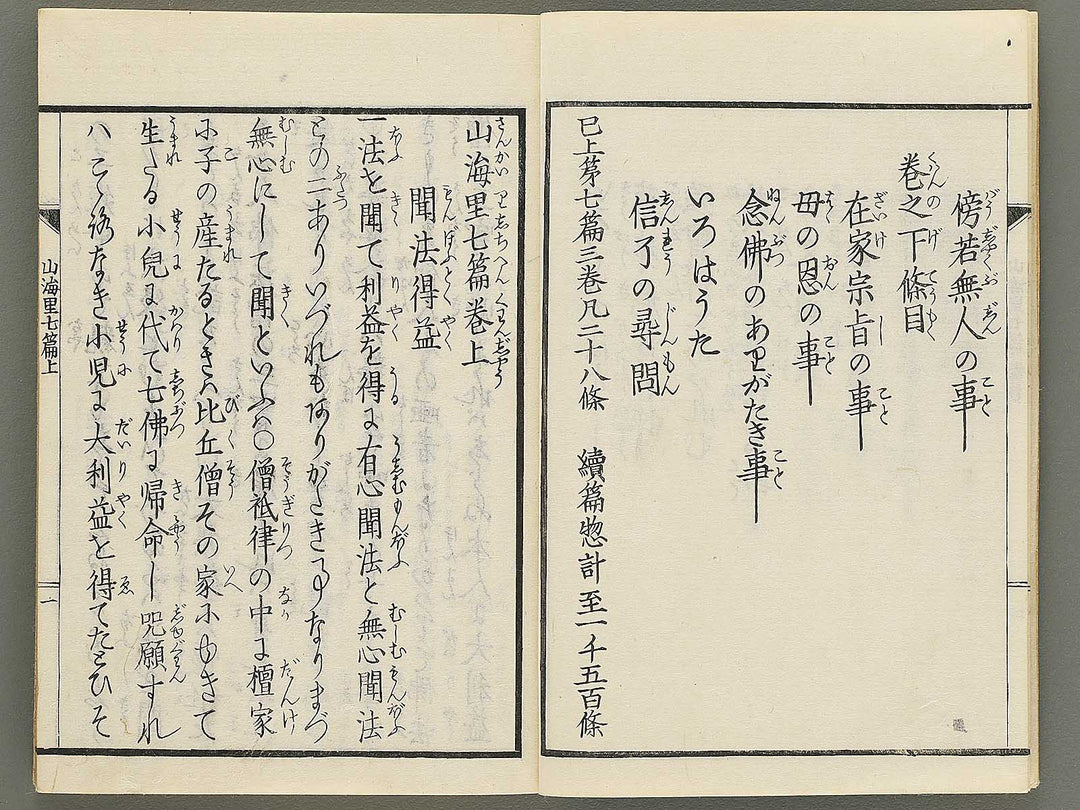 傍若無人の事
巻之下條目
在家宗旨の事
母の恩の事
念佛のありがたき事
いろはうた
信了の尋問
已上第七篇三巻凡二十八條　續篇惣計至一千五百條
山海里七篇巻上
聞法得益
一法を聞て利益を得に有心聞法と無心聞法
との二ありいづれもありがたき事なりまづ
無心にして聞といふは〇僧祗律の中に檀家
に子の産たるときは比丘僧その家にゆきて
生たる小兒に代て七佛に帰命し咒願すれ
ハこゝろなき小児に大利益を得てたとひそ
山海里七篇上
一